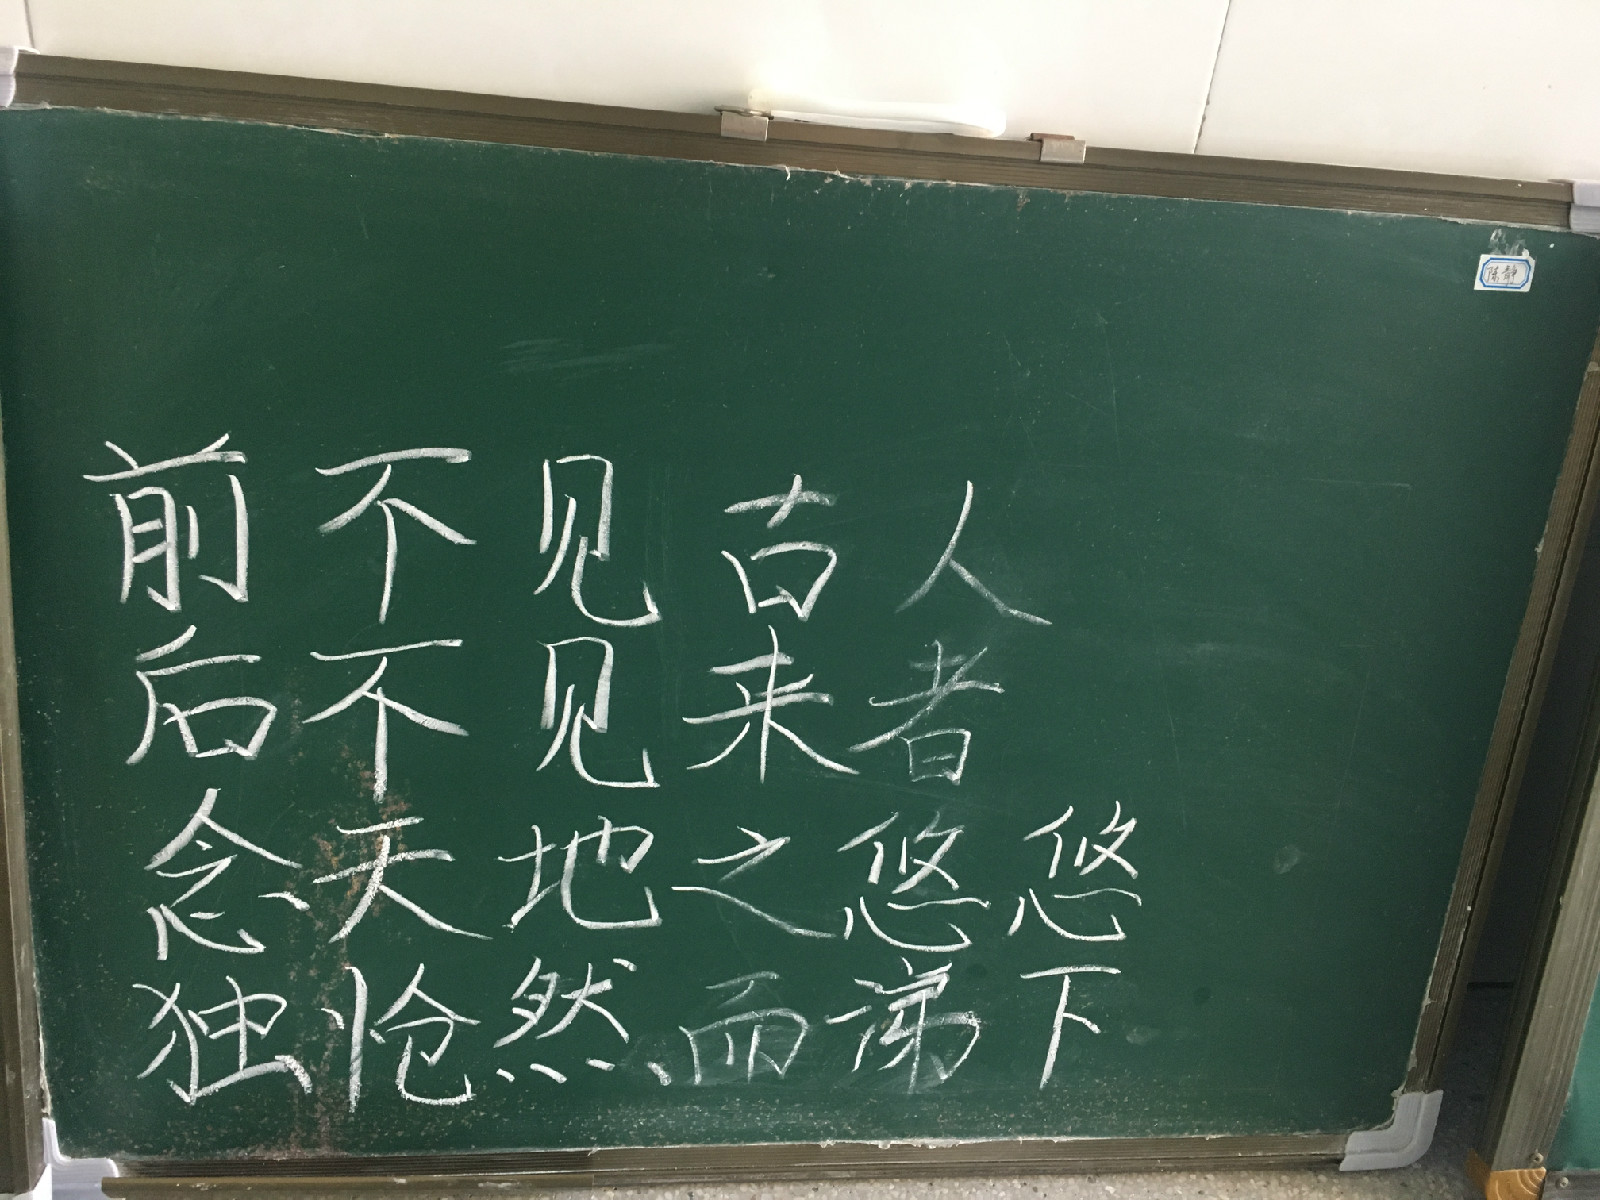 陈静
前不见古人
后不见来者
念天地之悠悠
独怆然而涕下